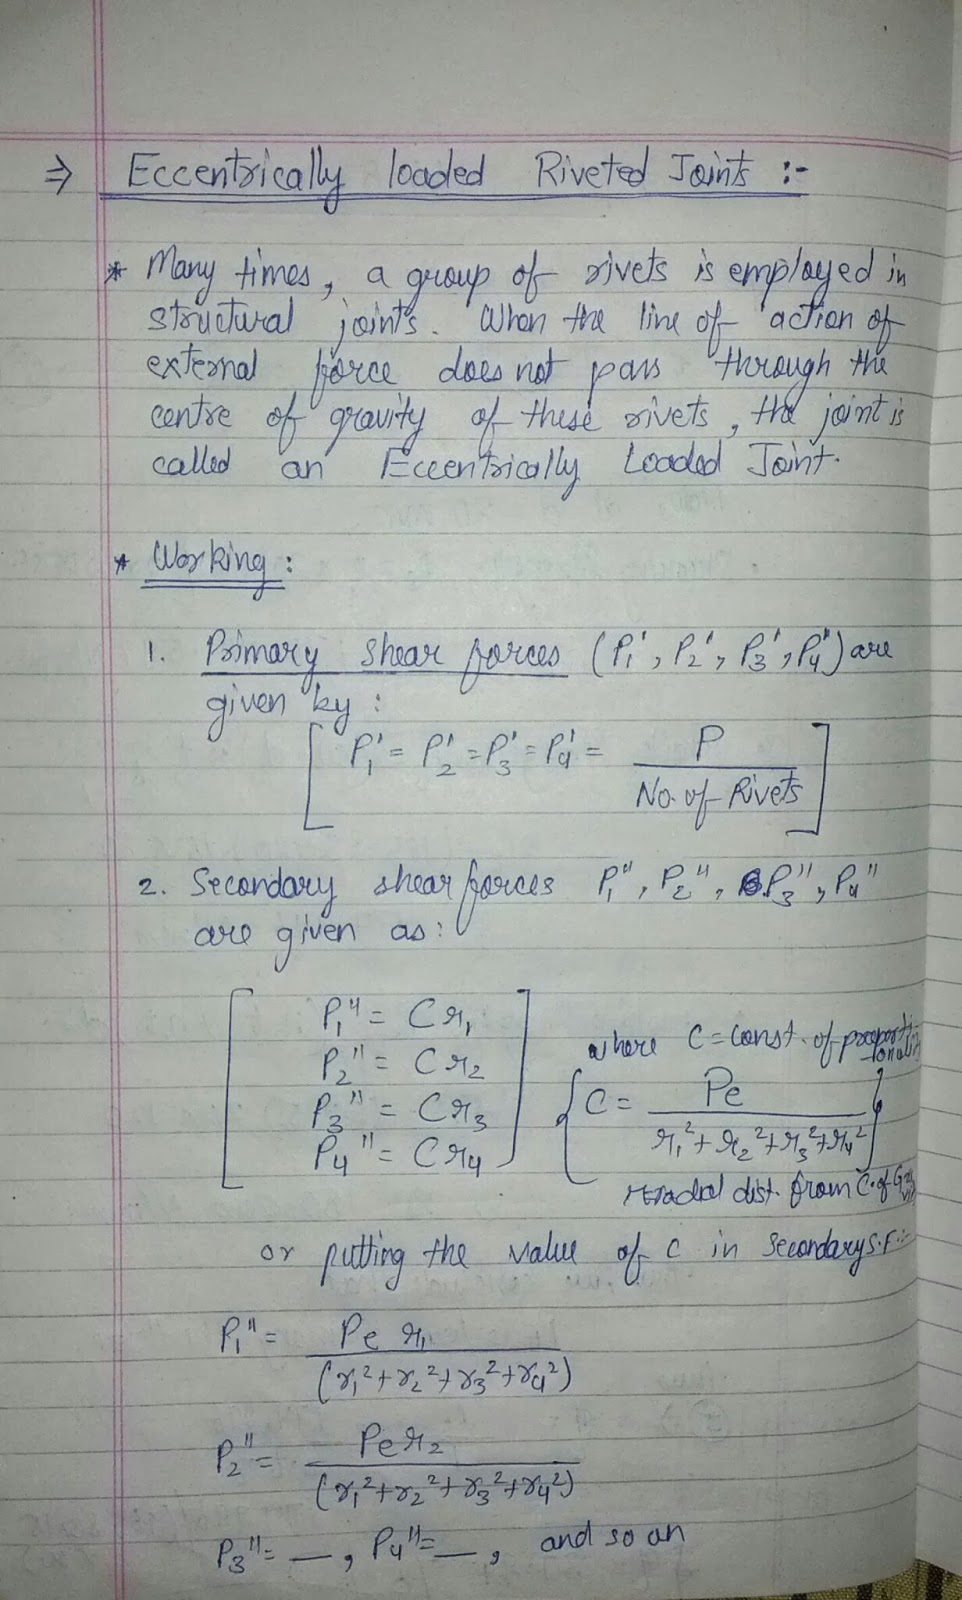 ⇒ Eccentrically loaded Riveted Joints :-
* Many times, a group of rivets is employed in
structural joints. When the line of action of
external force does not pass through the
centre of gravity of these rivets, the joint is
called an Eccentrically Loaded Joint.
* Working :
1. Primary shear forces (P₁', P₂', P₃', P₄') are
given by :
[ P₁' = P₂' = P₃' = P₄' = P / No. of Rivets ]
2. Secondary shear forces P₁", P₂", P₃", P₄"
are given as :
P₁" = Cr₁
P₂" = Cr₂
P₃" = Cr₃
P₄" = Cr₄
where C = const. of proportionality
{ C = Pe / r₁² + r₂² + r₃² + r₄² }
radial dist. from C. of Gravity
or putting the value of C in Secondary S.F :-
P₁" = Pe r₁ / (r₁² + r₂² + r₃² + r₄²)
P₂" = Pe r₂ / (r₁² + r₂² + r₃² + r₄²)
P₃" = —, P₄" = —, and so on